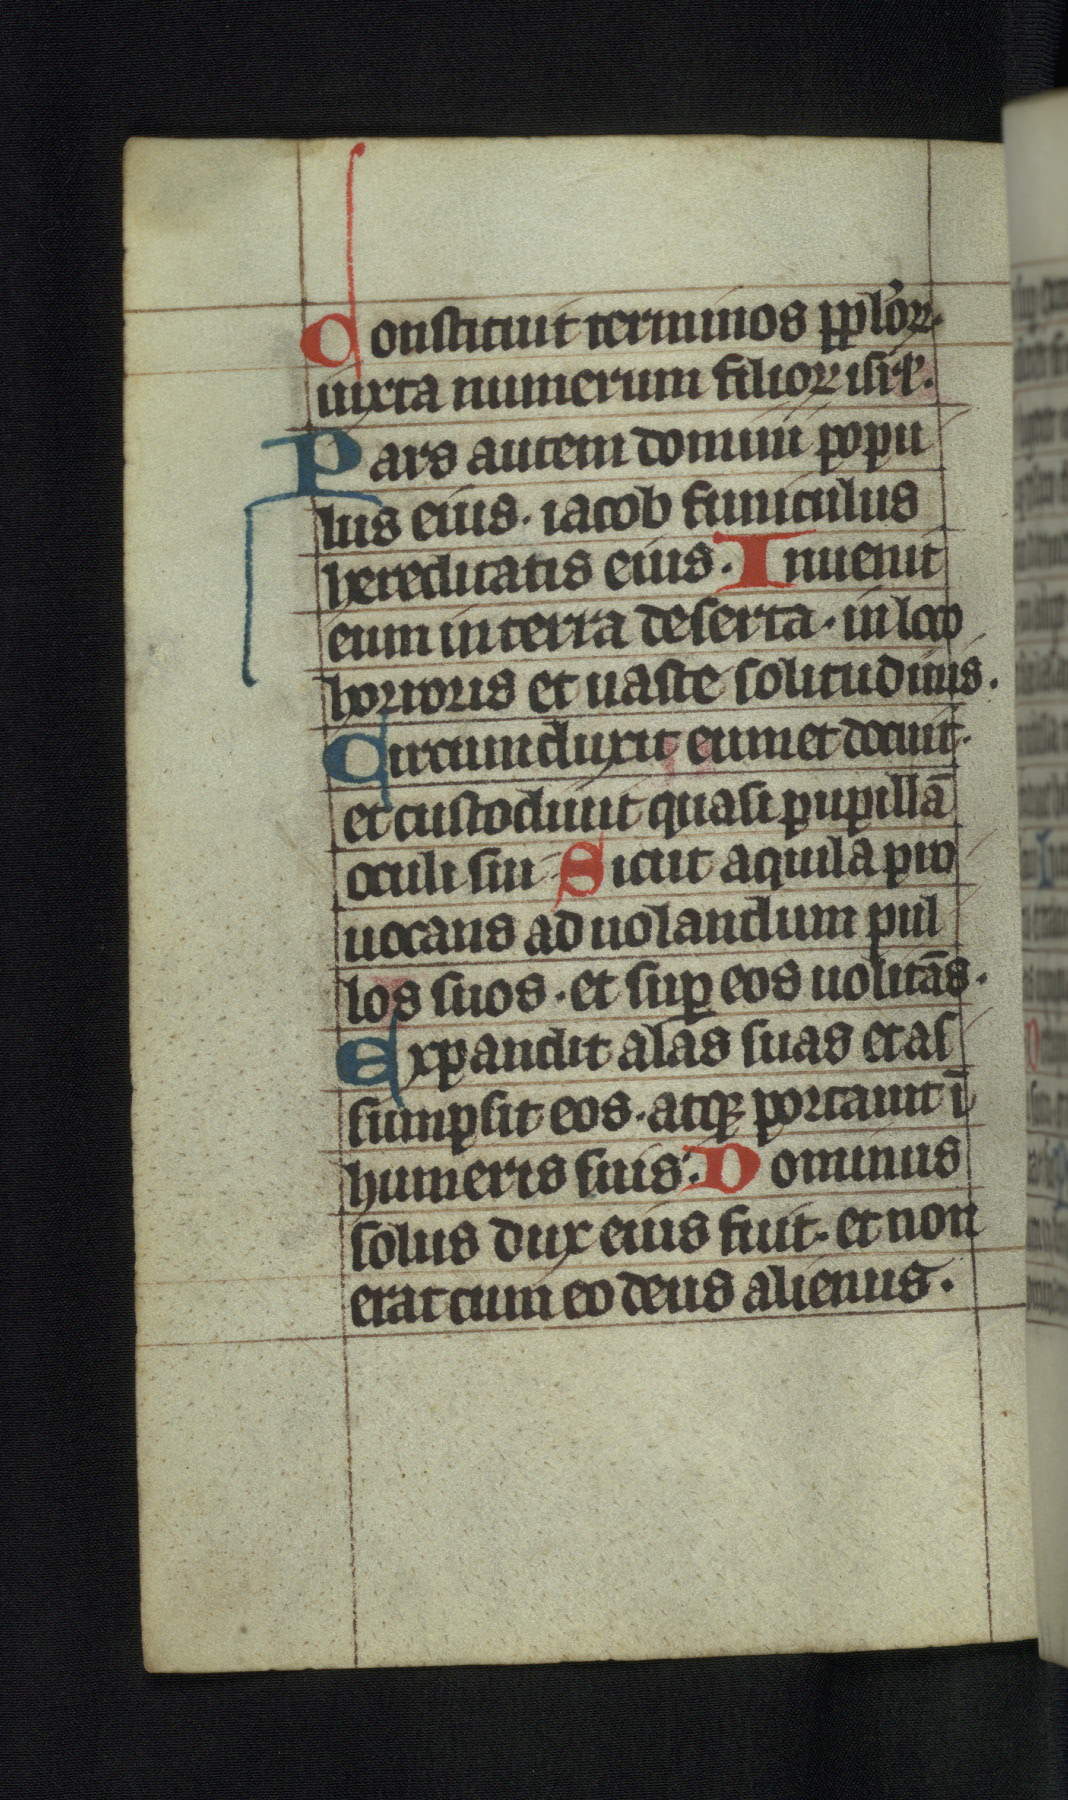 Constituit terminos pplo&#x27;ꝝ.
iuxta numerum filioꝝ isrl&#x27;.
Pars autem domini popu
lus eius. iacob funiculus
hereditatis eius. Inuenit
eum in terra deserta. in loco
horroris et uaste solitudinis.
Circumduxit eum et docuit.
et custodiuit quasi pupillā
oculi sui Sicut aquila pro
uocans ad uolandum pul
los suos. et suꝑ eos uolitās.
Expandit alas suas et as
sumpsit eos. atqꝫ portauit ī
humeris suis. Dominus
solus dux eius fuit. et non
erat cum eo deus alienus.